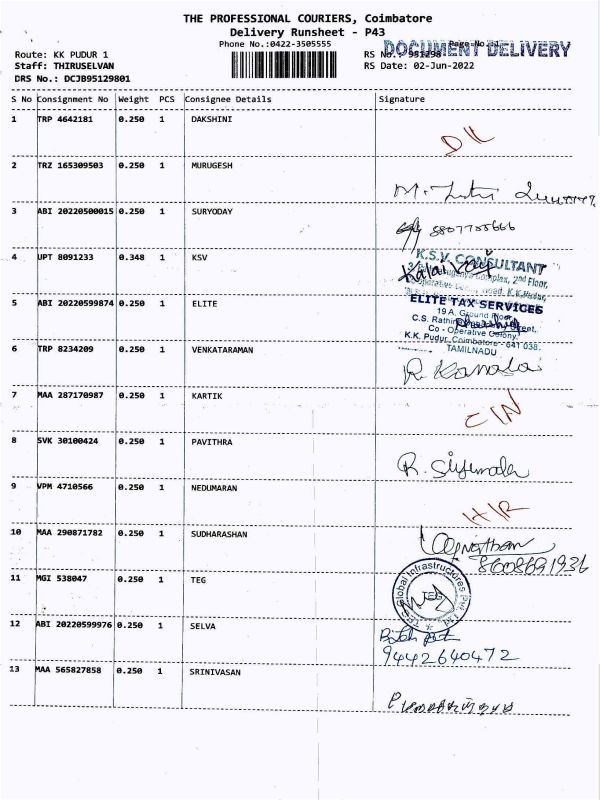 THE PROFESSIONAL COURIERS, Coimbatore
Delivery Runsheet - P43
Phone No.:0422-3505555
DOCUMENT DELIVERY
Route: KK PUDUR 1
RS No.: 951298
Staff: THIRUSELVAN
RS Date: 02-Jun-2022
DRS No.: DCJB95129801
S No Consignment No Weight PCS Consignee Details Signature
1 TRP 4642181 0.250 1 DAKSHINI
2 TRZ 165309503 0.250 1 MURUGESH
3 ABI 20220500015 0.250 1 SURYODAY
4 UPT 8091233 0.348 1 KSV
K.S.V. CONSULTANT
Complex, 2nd Floor,
K.K.Pudur,
5 ABI 20220599874 0.250 1 ELITE
ELITE TAX SERVICES
19 A, Ground Floor,
C.S. Street,
Co - Operative Colony,
K.K. Pudur, Coimbatore - 641 038.
TAMILNADU
6 TRP 8234209 0.250 1 VENKATARAMAN
7 MAA 287170987 0.250 1 KARTIK
8 SVK 30100424 0.250 1 PAVITHRA
9 VPM 4710566 0.250 1 NEDUMARAN
10 MAA 290871782 0.250 1 SUDHARASHAN
8608691936
11 MGI 538047 0.250 1 TEG
Global Infrastructures Pvt Ltd
TEG
12 ABI 20220599976 0.250 1 SELVA
9442640472
13 MAA 565827858 0.250 1 SRINIVASAN